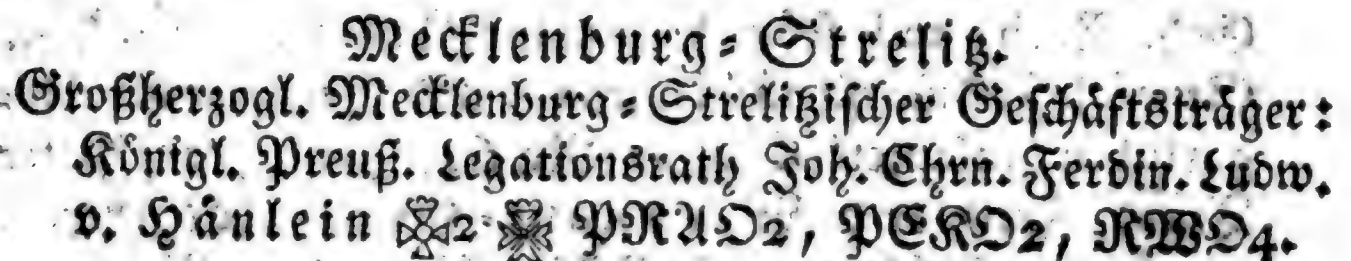 Mecklenburg-Strelitz.
Großherzogl. Mecklenburg-Strelitzischer Geschäftsträger:
Königl. Preuß. Legationsrath Joh. Chrn. Ferdin. Ludw.
v. Hänlein 2 PRAO2, PEKO2, RWO4.